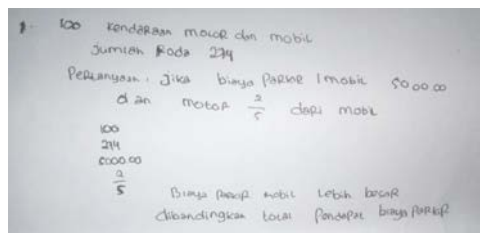 1. 100 kendaraan motor dan mobil
jumlah Roda 274
Pertanyaan. jika biaya parkir 1 mobil 5000.00
dan motor 2/5 dari mobil
100
274
5000.00
2/5
Biaya parkir mobil lebih besar
dibandingkan total pendapat biaya parkir